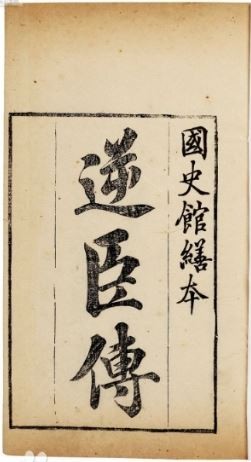 國史館繕本
逆臣傳